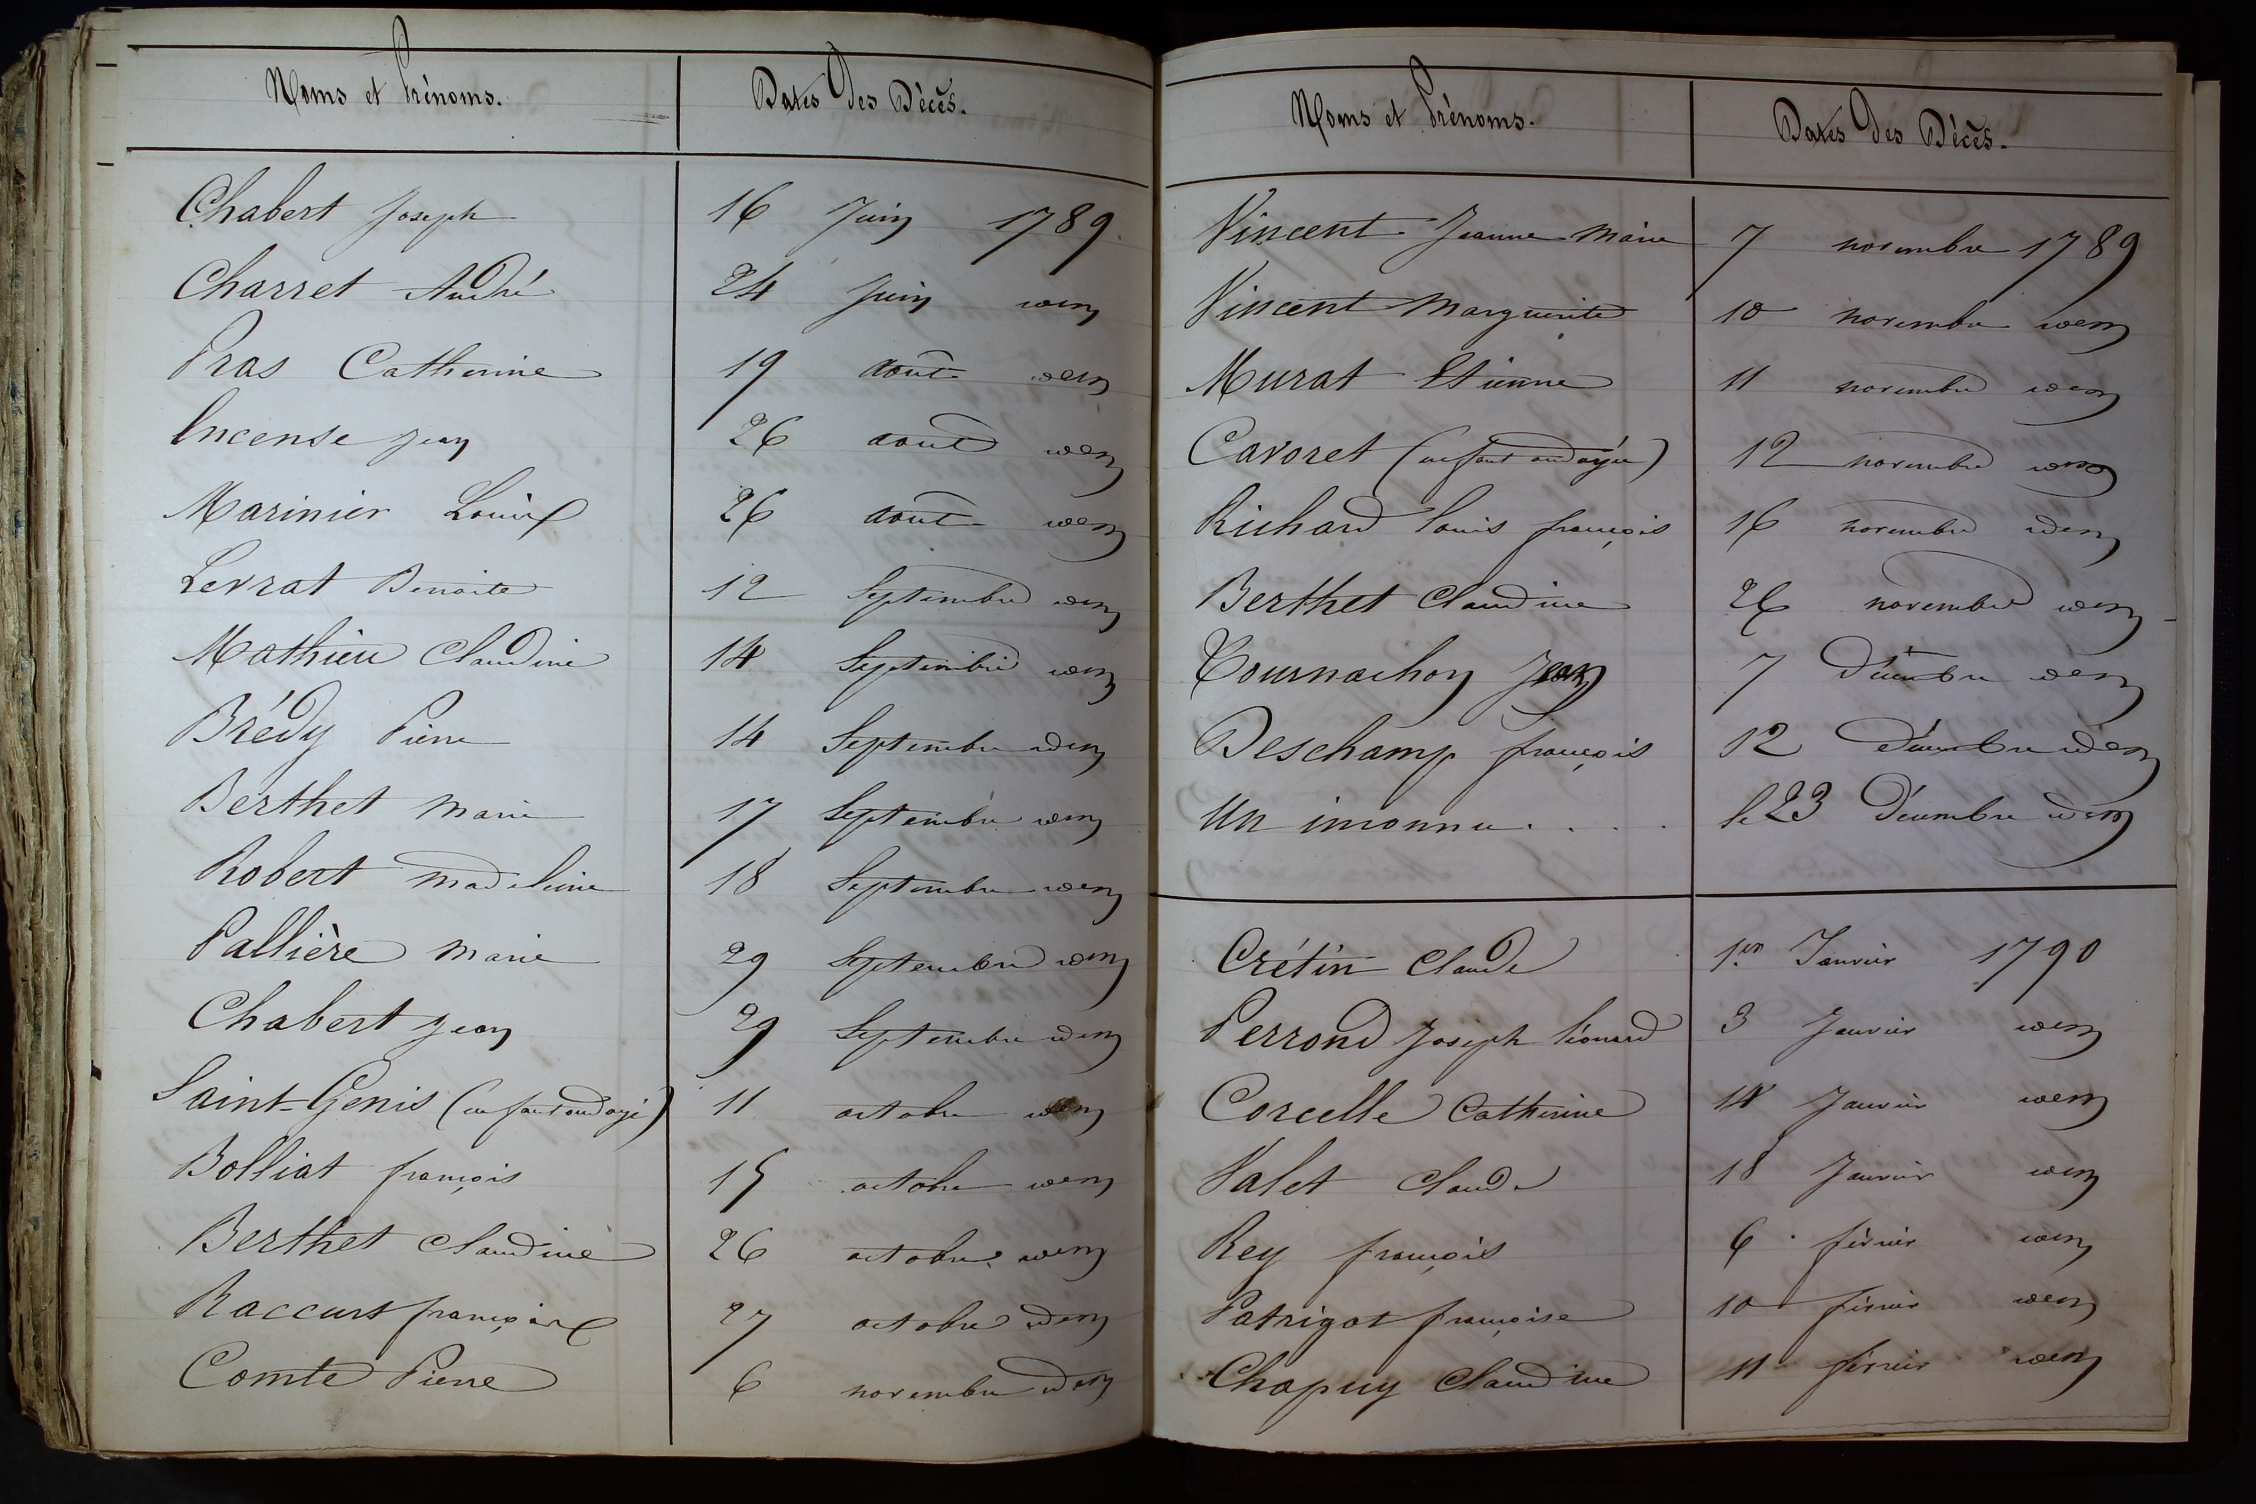 Noms et Prénoms. Dates des Décès.
Chabert Joseph 16 Juin 1789.
Charret André 24 Juin idem
Pras Catherine 19 août idem
Incense Jean 26 août idem
Marinier Louise 26 août idem
Levrat Benoite 12 Septembre idem
Mathieu Claudine 14 Septembre idem
Brédy Pierre 14 Septembre idem
Berthet Marie 17 Septembre idem
Robert Madeleine 18 Septembre idem
Pallière Marie 29 Septembre idem
Chabert Jean 29 Septembre idem
Saint-Genis (enfant ondoyé) 11 octobre idem
Bolliat françois 15 octobre idem
Berthet Claudine 26 octobre idem
Raccurt françoise 27 octobre idem
Comte Pierre 6 novembre idem
Noms et Prénoms. Dates des Décès.
Vincent Jeanne Marie 7 novembre 1789
Vincent Marguerite 10 novembre idem
Murat Etienne 11 novembre idem
Cavoret (enfant ondoyée) 12 novembre idem
Richard Louis françois 16 novembre idem
Berthet Claudine 26 novembre idem
Tournachon Jean 7 Décembre idem
Deschamp françois 12 décembre idem
Un inconnu.... le 23 Décembre idem
Crétin Claude 1er Janvier 1790
Perrond Joseph léonard 3 Janvier idem
Corcelle Catherine 14 Janvier idem
Valet Claude 18 Janvier idem
Rey françois 6 février idem
Patrigot françoise 10 février idem
Chapuy Claudine 11 février idem